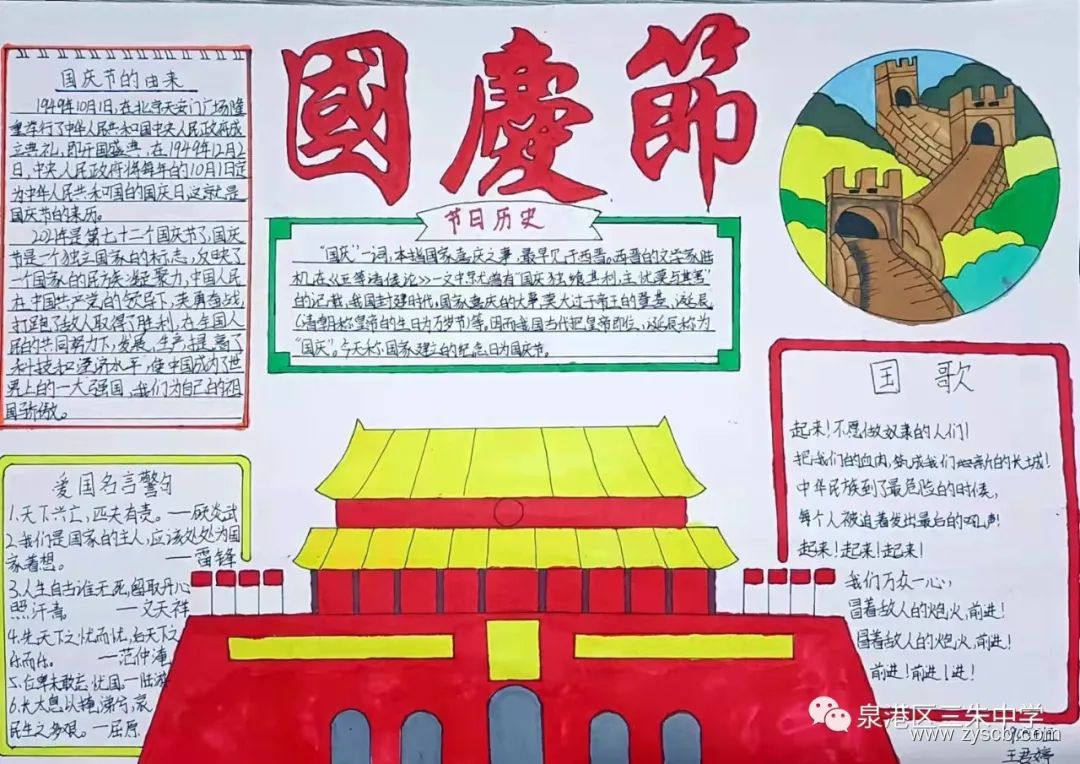 國慶節
国庆节的由来
1949年10月1日,在北京天安门广场隆
重举行了中华人民共和国中央人民政府成
立典礼,即开国盛典。在1949年12月2
日,中央人民政府将每年的10月1日定
为中华人民共和国的国庆日,这就是
国庆节的来历。
2021年是第七十二个国庆节了,国庆
节是一个独立国家的标志,反映了
一个国家的民族凝聚力,中国人民
在中国共产党的领导下,英勇奋战,
打跑了敌人取得了胜利,在全国人
民的共同努力下,发展生产提高了
科技和经济水平,使中国成为了世
界上的一大强国,我们为自己的祖
国骄傲。
节日历史
“国庆”一词,本指国家喜庆之事,最早见于西晋。西晋的文学家陆
机在《五等诸侯论》一文中就曾有“国庆独飨其利,主忧莫与其害”
的记载,我国封建时代,国家喜庆的大事莫大过于帝王的登基、诞辰
(清朝称皇帝的生日为万岁节)等。因而我国古代把皇帝即位、诞辰称为
“国庆”。今天称国家建立的纪念日为国庆节。
国歌
起来!不愿做奴隶的人们!
把我们的血肉,筑成我们新的长城!
中华民族到了最危险的时候,
每个人被迫着发出最后的吼声!
起来!起来!起来!
我们万众一心,
冒着敌人的炮火,前进!
冒着敌人的炮火,前进!
前进!前进!进!
爱国名言警句
1.天下兴亡,匹夫有责。——顾炎武
2.我们是国家的主人,应该处处为国
家着想。——雷锋
3.人生自古谁无死,留取丹心
照汗青。——文天祥
4.先天下之忧而忧,后天下之
乐而乐。——范仲淹
5.位卑未敢忘忧国。—陆游
6.长太息以掩涕兮,哀
民生之多艰。—屈原
泉港区三朱中学
www.zyscbj.com
王君婷